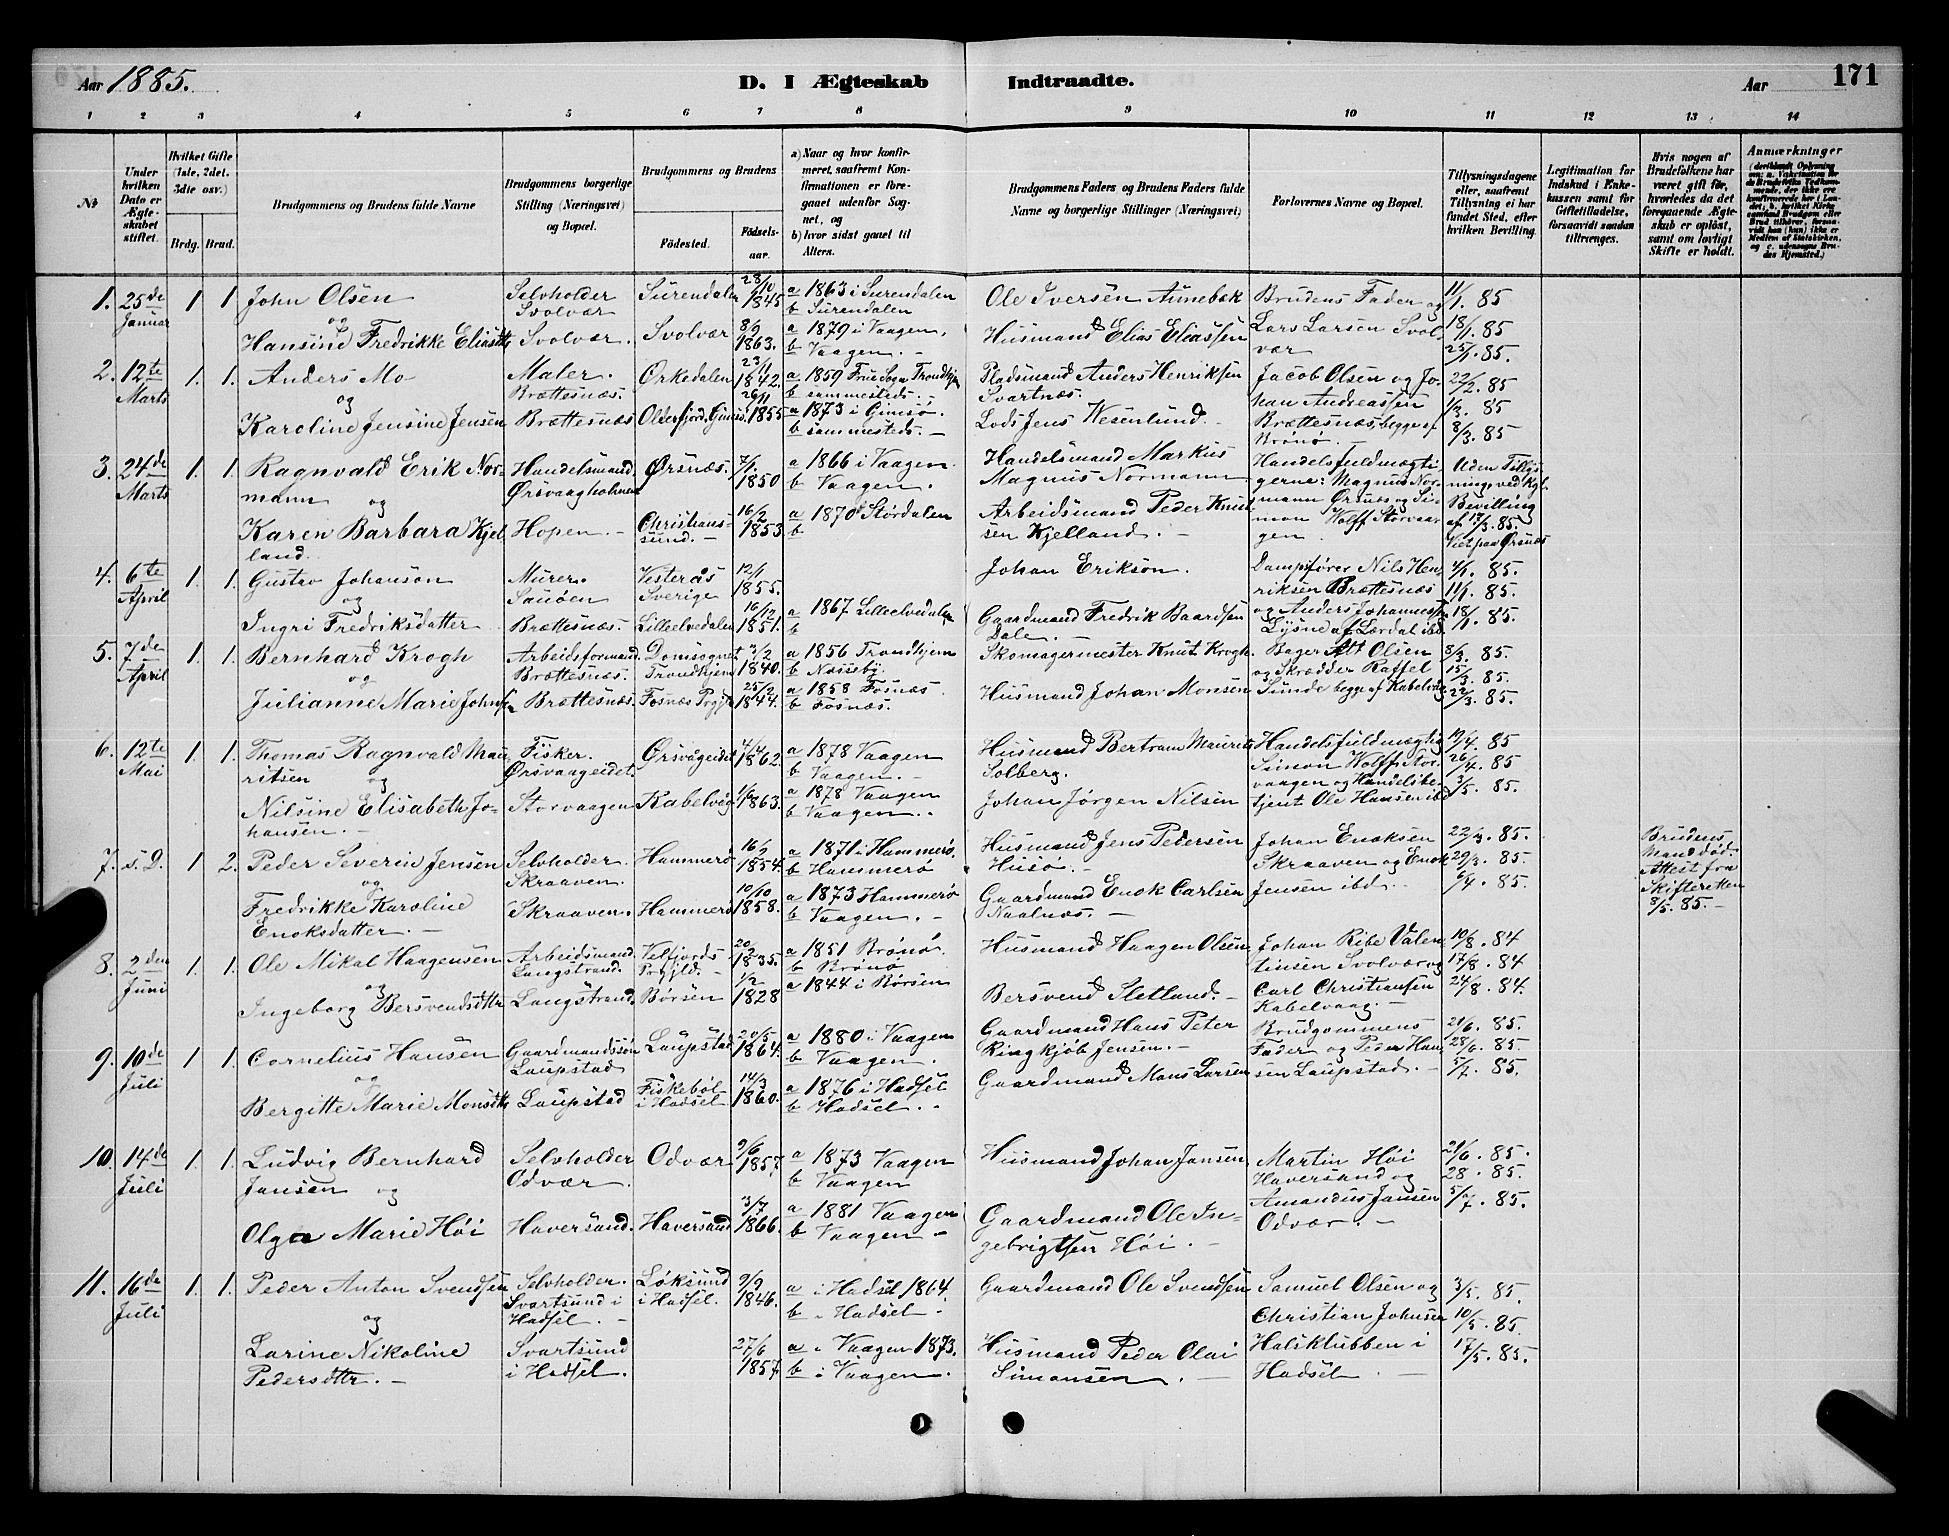 Aar 1885.
D. I Ægteskab Indtraadte.
Aar
171
1 2 3 4 5 6 7 8 9 10 11 12 13 14
No
Under hvilken Dato er Ægteskabet stiftet.
Hvilket Gifte (1ste, 2det, 3die osv.)
Brdg. Brud.
Brudgommens og Brudens fulde Navne
Brudgommens borgerlige Stilling (Næringsvei) og Bopæl.
Brudgommens og Brudens
Fødested.
Fødselsaar.
a) Naar og hvor konfirmeret, saafremt Konfirmationen er foregaaet udenfor Sognet, og
b) hvor sidst gaaet til Alters.
Brudgommens Faders og Brudens Faders fulde Navne og borgerlige Stillinger (Næringsvei)
Forlovernes Navne og Bopæl.
Tillysningsdagene eller, saafremt Tillysning ei har fundet Sted, efter hvilken Bevilling.
Legitimation for Indskud i Enkekassen samt for Giftetilladelse, forsaavidt saadan tiltrænges.
Hvis nogen af Brudefolkene har været gift før, hvorledes da det foregaaende Ægteskab er opløst, samt om lovligt Skifte er holdt.
Anmærkninger
1. 25de Januar 1 1. John Olsen Selvholder Svolvær Surendalen 28/10 1845 a 1863 i Surendalen b Surendalen Ole Iversen Aunebæk Brudens Fader og 11/1. 85
og
Hansine Fredrikke Eliasdtr Svolvær. Svolvær 8/9 1863. a 1879 i Vaagen, b Vaagen. Husmand Elias Eliassen Lars Larsen Svolvær 18/1. 85 25/1. 85.
2. 12te Marts 1. 1. Anders Mo Maler. Brættesnæs. Orkedalen 23/1 1842. a 1859 Frue Sogn Trondhjem b sammesteds. Pladsmand Anders Henriksen Svartnæs. Jacob Olsen og Johan Andreassen 22/2. 85 1/3. 85
og
Karoline Jensine Jensen Brættesnæs Oldersfjord, Gimsø. 26/11 1855 a 1873 i Gimsø. b sammesteds. Lods Jens Wesenlund. Brættesnæs, begge af Brønø. 8/3. 85
3. 24de Marts 1. 1. Ragnvald Erik Normann Handelsmand. Ørsvaagholmen Ørsnæs. 7/1. 1850 a 1866 i Vaagen. b Vaagen. Handelsmand Markus Magnus Normann Handelsfuldmægtigerne: Magnus Normann Ørsnæs og Simon Wolff Storvaagen Uden Tillysning ved Kgl. Bevilling af 17/3. 85. Viet paa Ørsnæs
og
Karen Barbara Kjelland. Hopen. Christianssund. 16/2 1853 a 1870 Størdalen b Arbeidsmand Peder Knutsen Kjelland.
4. 6te April 1. 1. Gustav Johanson Murer. Sauøen Vesterås Sverige 12/1 1855. Johan Erikson. Dampfører Nils Henriksen Brættesnæs 4/1. 85. 11/1. 85.
og
Ingri Fredriksdatter Brættesnæs. Lilleelvedalen 16/12 1851. a 1867 Lilleelvedalen b Gaardmand Fredrik Baardsen Dale. og Anders Johannessen Lysne af Lærdal ibd. 18/1. 85.
5. 7de April 1. 1. Bernhard Krogh Arbeidsformand Brættesnæs. Domsognet Trondhjem 3/2 1840. a 1856 Trondhjem b Næsseby. Skomagermester Knut Krogh. Bager Alt Olsen og Skrædder Raffel 8/3. 85. 15/3. 85.
og
Julianne Marie Johnsen Brættesnæs. Fosnæs Prgjd. 25/2 1844. a 1858 Fosnæs. b Fosnæs. Husmand Johan Monsen Sunde begge af Kabelvåg 22/3. 85.
6. 12te Mai 1. 1. Thomas Ragnvald Mauritsen Fisker. Ørsvaageidet. Ørsvågeidet 4/4 1862. a 1878 Vaagen b Vaagen. Husmand Bertram Maurits Solberg. Handelsfuldmægtig Simon Wolff Storvaagen og Handelsbetjent Ole Hansen ibd 19/4. 85 26/4. 85 3/5. 85.
og
Nilsine Elisabeth Johansen. Storvaagen Kabelvåg 1/6 1863. a 1878 Vaagen b Vaagen. Johan Jørgen Nilsen
7. s. D. 1 2. Peder Severin Jensen Selvholder. Skraaven. Hammerø 16/2 1854. a 1871 i Hammerø. b Hammerø Husmand Jens Pedersen Husø. Johan Enoksen Skraaven og Enok Jensen ibd. 22/3. 85. 29/3. 85. 6/4. 85. Brudens Mand død. Attest fra Skifteretten 8/5. 85.
og
Fredrikke Karoline Enoksdatter. Skraaven. Hammerø 10/10 1858. a 1873 Hammerø b Vaagen. Gaardmand Enok Carlsen Naalnæs.
8. 2den Juni 1. 1. Ole Mikal Haagensen Arbeidsmand. Langstrand. Velfjords Prgjld. 20/2 1835. a 1851 Brønø. b Brønø Husmand Haagen Olsen Johan Ribe Valentinsen Svolvær og 10/8. 84 17/8. 84
og
Ingeborg Bersvendsdtr Langstrand. Børsen 1/2 1828 a 1844 i Børsen Bersvend Sletland. Carl Christiansen Kabelvaag. 24/8. 84.
9. 10de Juli 1. 1. Cornelius Hansen Gaardmandssøn Laupstad Laupstad 20/5 1864. a 1880 i Vaagen b Vaagen. Gaardmand Hans Peter Ringkjøb Jensen. Brudgommens Fader og Peder Hansen Laupstad. 21/6. 85. 28/6. 85 5/7. 85.
og
Bergitte Marie Monsdtr Laupstad Fiskebøl i Hadsel 14/3 1860. a 1876 i Hadsel b Hadsel. Gaardmand Mons Larsen
10. 14de Juli 1. 1. Ludvig Bernhard Jansen Selvholder Odvær. Odvær 9/6 1857. a 1873 Vaagen b Vaagen Husmand Johan Jansen Martin Høi Haversand og Amandus Jansen Odvær. 21/6. 85. 28. 85 5/7. 85.
og
Olga Marie Høi Haversand. Haversand 3/7 1866. a 1881 Vaagen b Vaagen Gaardmand Ole Ingebrigtsen Høi.
11. 16de Juli 1. 1. Peder Anton Svendsen Selvholder. Svartsund i Hadsel. Løksund i Hadsel. 9/9 1846. a i Hadsel 1864. b i Hadsel Gaardmand Ole Svendsen Samuel Olsen og Christian Johnsen Halsklubben i Hadsel 3/5. 85. 10/5. 85. 17/5. 85.
og
Larine Nikoline Pedersdtr. Svartsund i Hadsel. 27/6 1857. a i Vaagen 1873. b i Vaagen. Husmand Peder Olai Simonsen.